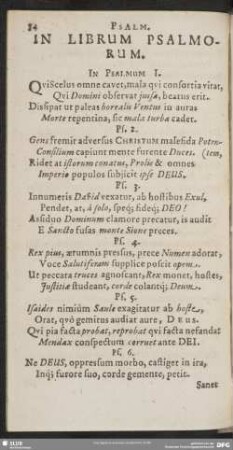 84 PSALM.
IN LIBRUM PSALMO-
RUM.
IN PSALMUM I.
QVi scelus omne cavet, mala qvi consortia vitat,
Qvi Domini observat jussa, beatus erit.
Dissipat ut paleas borealis Ventus in auras
Morte repentina, sic mala turba cadet.
Ps. 2.
Gens fremit adversus CHRISTUM malesida Poten-
Consilium capiunt mente furente Duces. (tem,
Ridet at istorum conatus, Prolis & omnes
Imperio populos subjicit ipse DEUS.
Ps. 3.
Innumeris David vexatur, ab hostibus Exul,
Pendet, at, à solo, speq; fideq; DEO!
Assiduo Dominum clamore precatur, is audit
E Sancto fusas monte Sione preces.
Ps. 4.
Rex pius, ærumnis pressus, prece Numen adorat,
Voce Salutiferam supplice poscit opem.
Ut peccata truces agnoscant, Rex monet, hostes,
Justitiæ studeant, corde colantq; Deum.
Ps. 5.
Isaides nimiùm Saule exagitatur ab hoste,
Orat, quò gemitus audiat aure, DEUS.
Qvi pia facta probat, reprobat qvi facta nefanda!
Mendax conspectum corruet ante DEI.
Ps. 6.
Ne DEUS, oppressum morbo, castiget in ira,
Inqi furore suo, corde gemente, petit.
Sanet